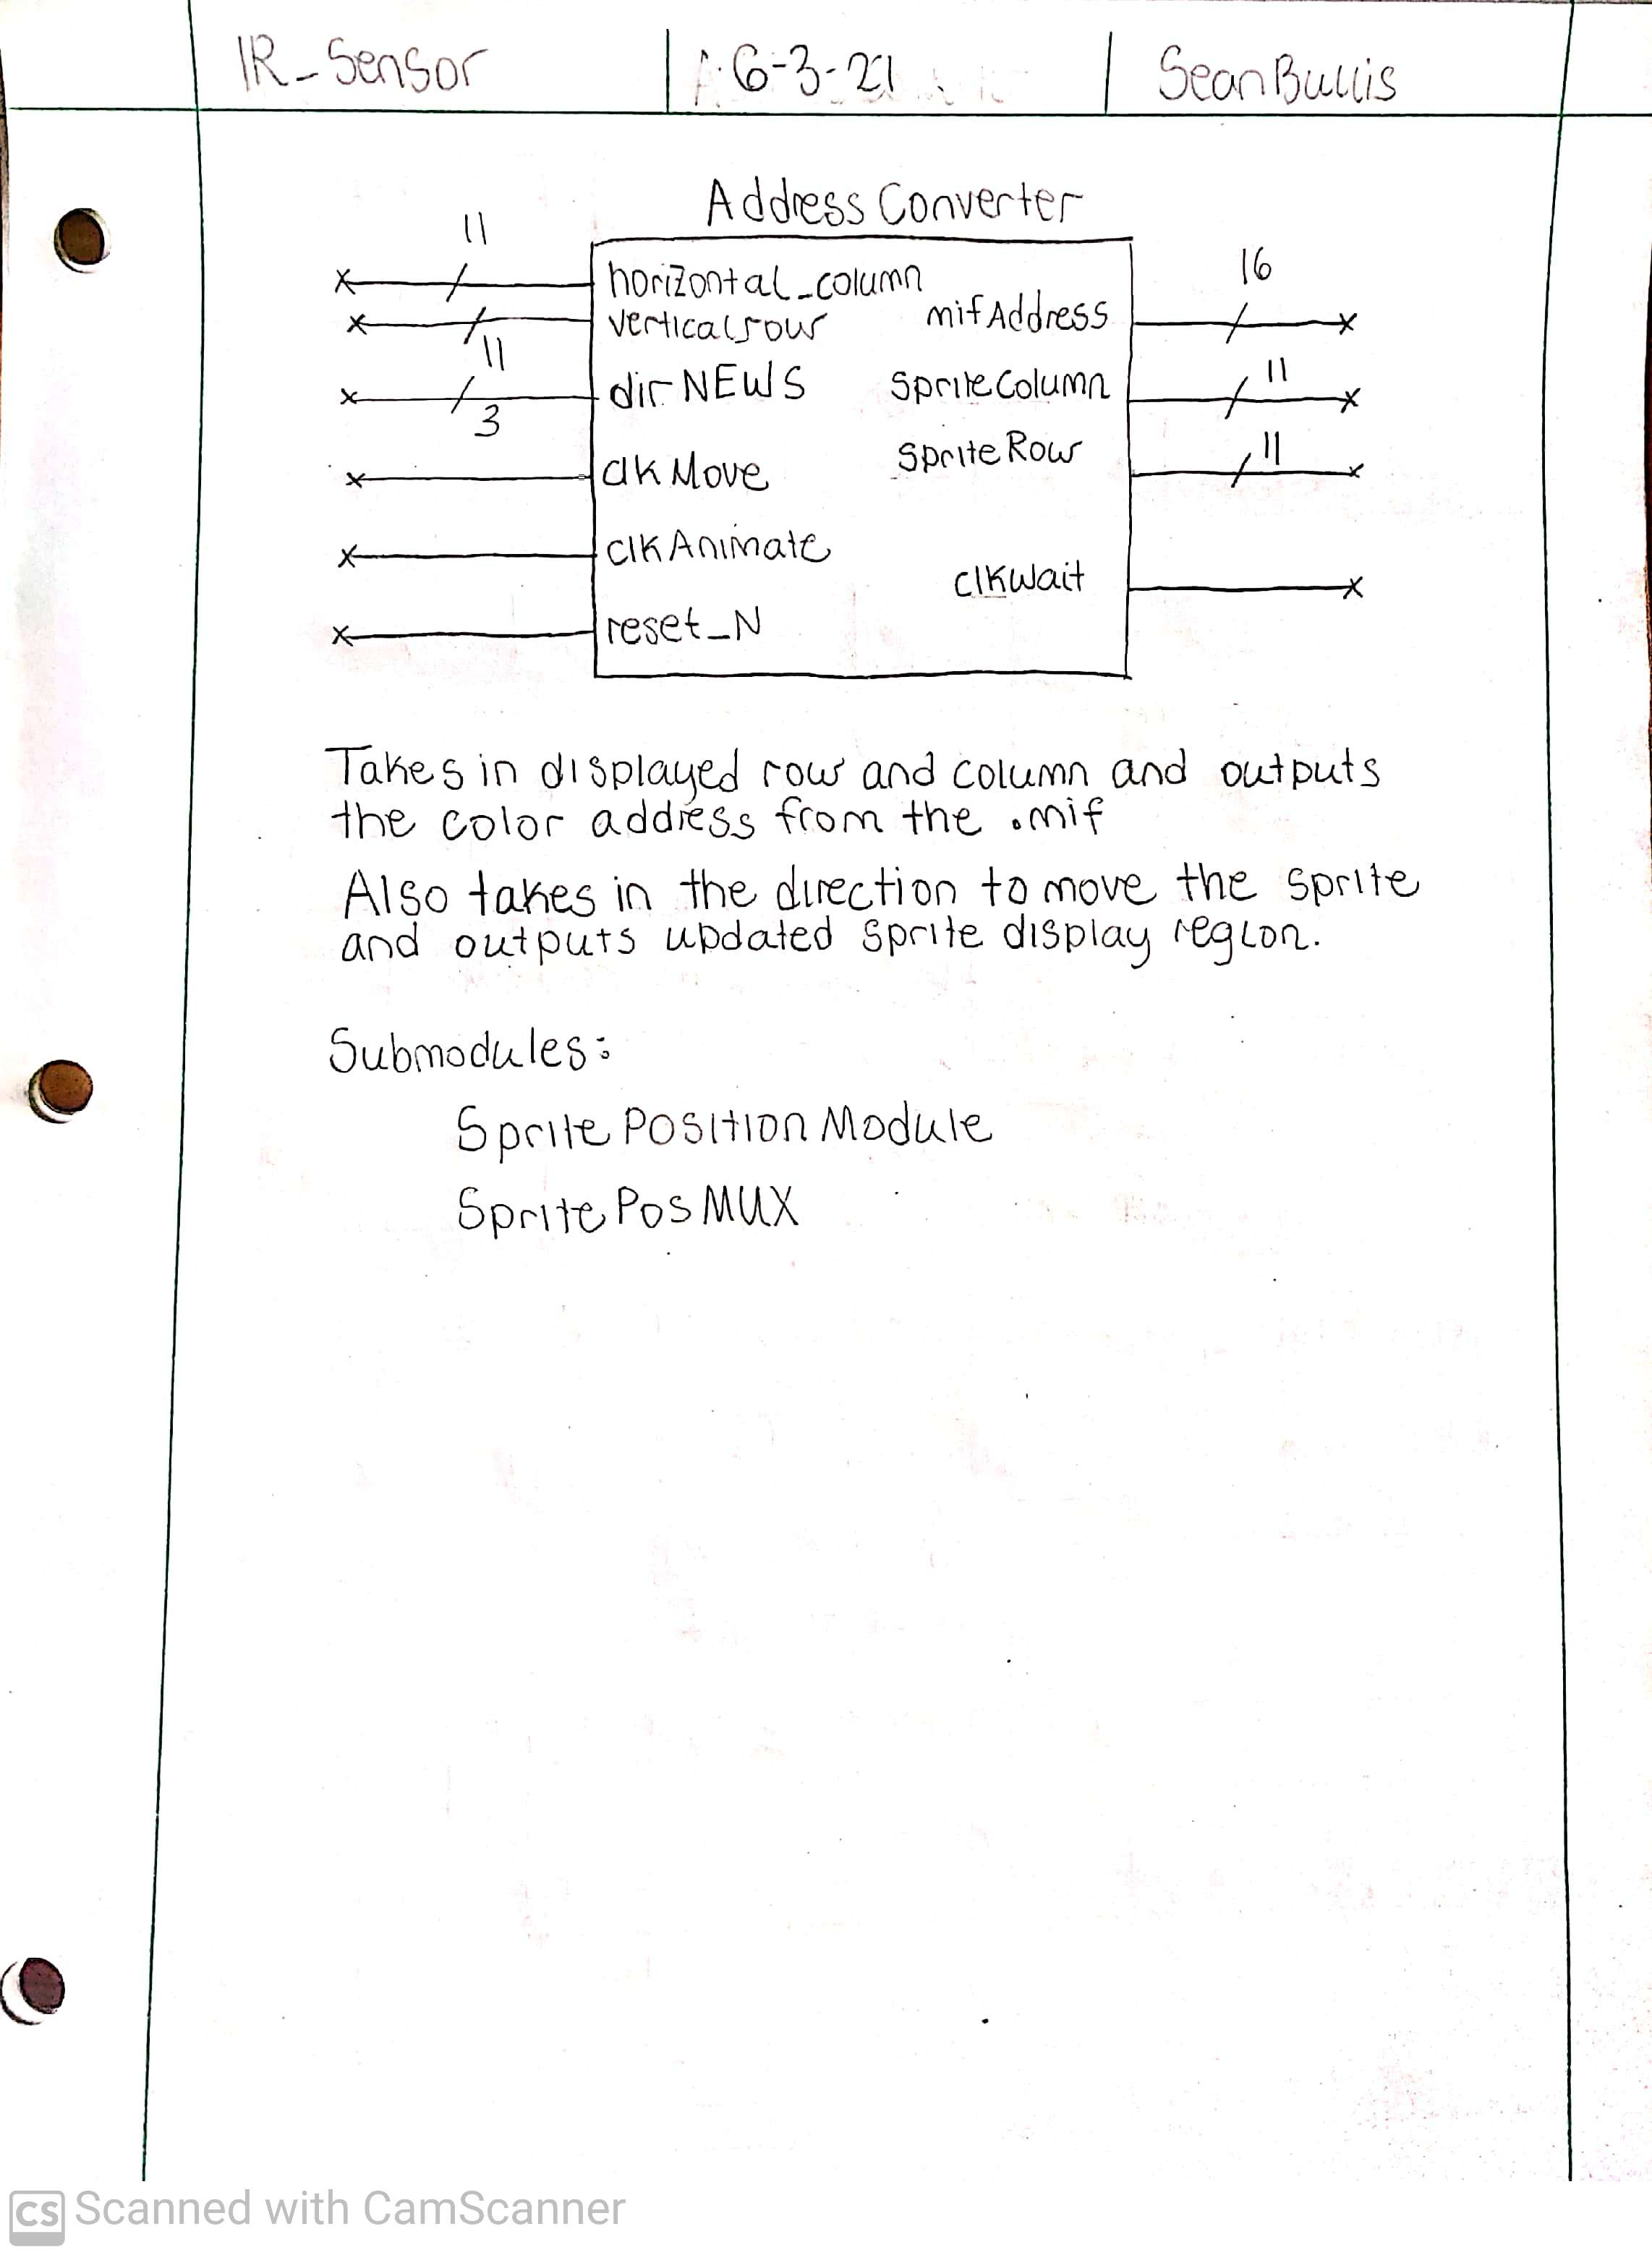 IR_Sensor
6-3-21
Sean Bullis
Address Converter
11
horizontal_column
16
mifAddress
verticalrow
11
dirNEWS
3
spriteColumn
11
clkMove
spriteRow
11
clkAnimate
clkWait
reset_N
Takes in displayed row and column and outputs
the color address from the .mif
Also takes in the direction to move the sprite
and outputs updated sprite display region.
Submodules:
Sprite Position Module
Sprite Pos MUX
CS Scanned with CamScanner